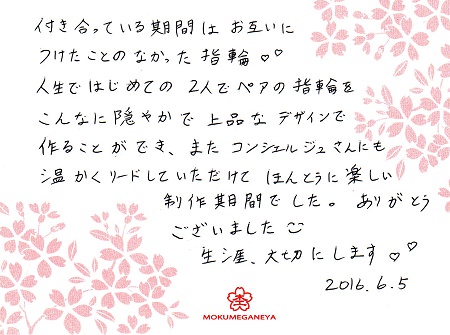 付き合っている期間はお互いに
つけたことのなかった指輪♡♡
人生ではじめての2人でペアの指輪を
こんなに隠やかで上品なデザインで
作ることができ、またコンシェルジュさんにも
温かくリードしていただけてほんとうに楽しい
制作期間でした。ありがとう
ございました☺
生涯、大切にします♡♡
2016.6.5
MOKUMEGANEYA